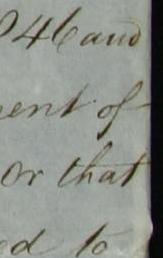 46 and
ent of
or that
ed to